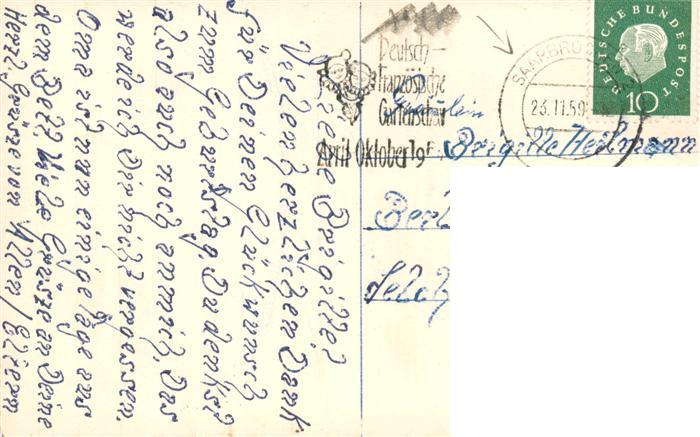 Liebe Brigitte,
Vielen herzlichen Dank
Für Deinen Glückwunsch
zum Geburtstag. Du denkst
also auch noch an mich, das
werde ich Dir nicht vergessen.
Oma ist nun einige Tage aus
dem Bett. Viele Grüsse an Deine
Eltern
Herzl. Grüsse von Allen
Deutsch-
Französische
Gartenschau
April-Oktober 19
SAARBRÜ
23.11.59
DEUTSCHE BUNDESPOST
10
Fräulein
Brigitte Heilmann
Berl